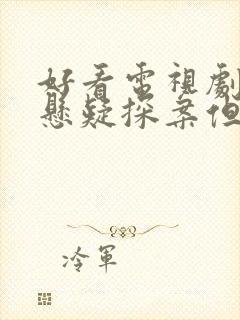 好看電視劇
懸疑探案但
冷軍